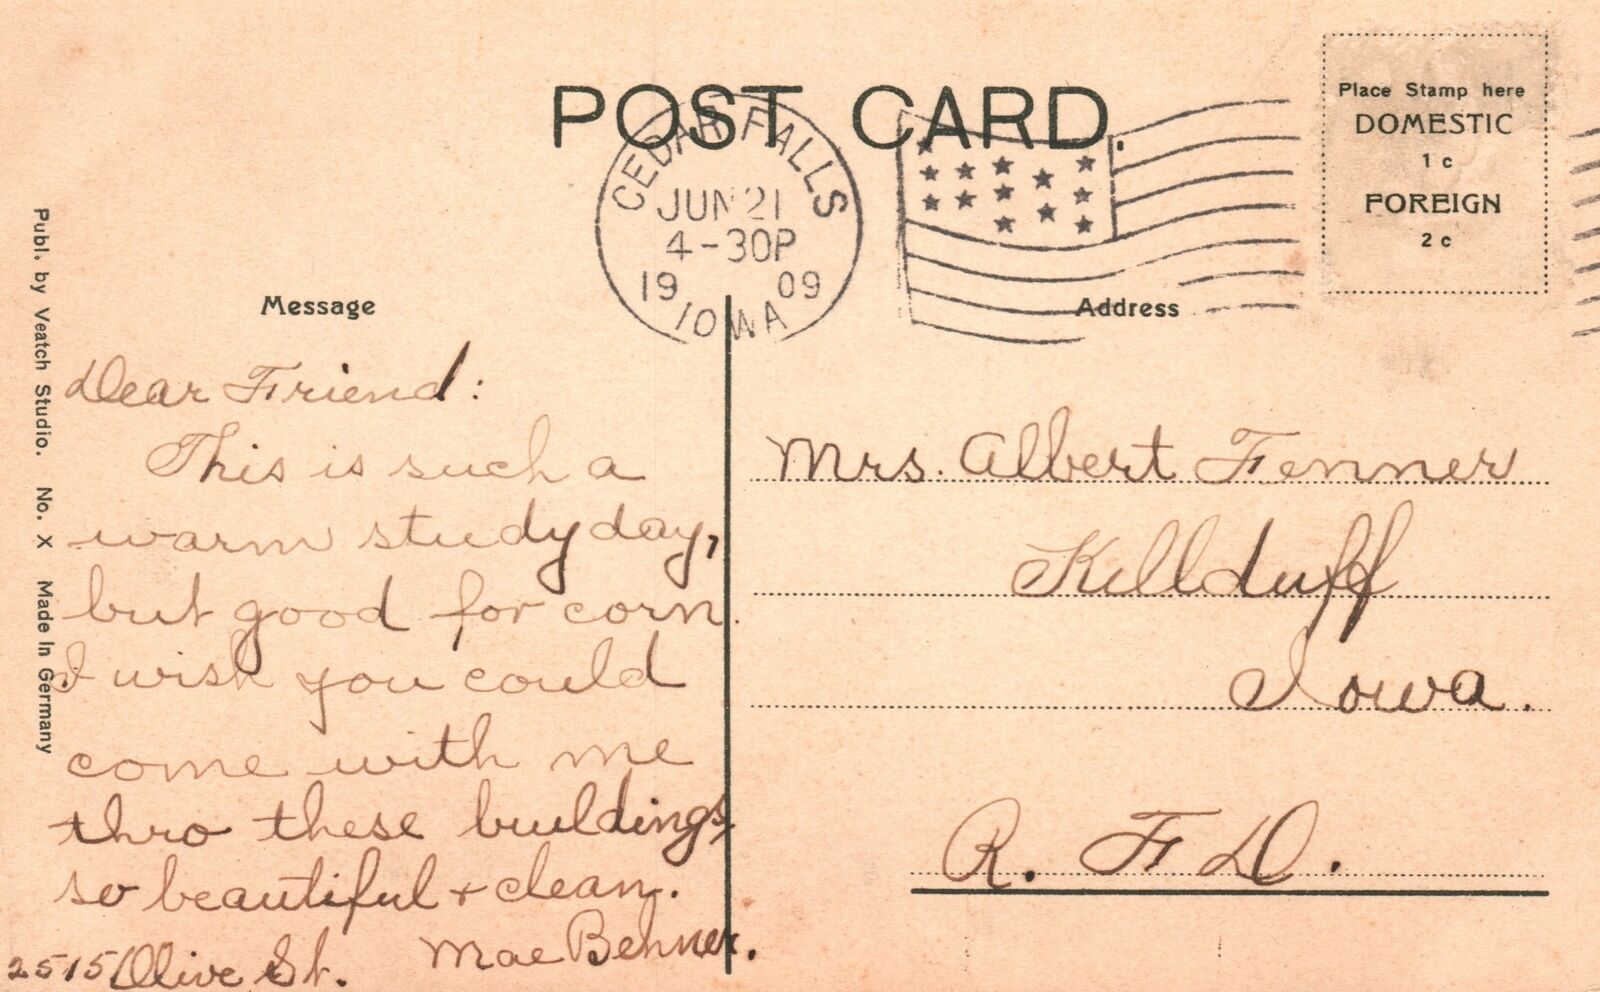 POST CARD.
CEDAR FALLS
JUN 21
4-30P
19 09
IOWA
Place Stamp here
DOMESTIC
1 c
FOREIGN
2 c
Publ. by Veatch Studio. No. X Made in Germany
Message
Dear Friend:
This is such a
warm study day,
but good for corn.
I wish you could
come with me
thro these buildings,
so beautiful + clean.
Mae Behner.
2515 Olive St.
Address
Mrs. Albert Fenner
Killduff
Iowa.
R. F D.